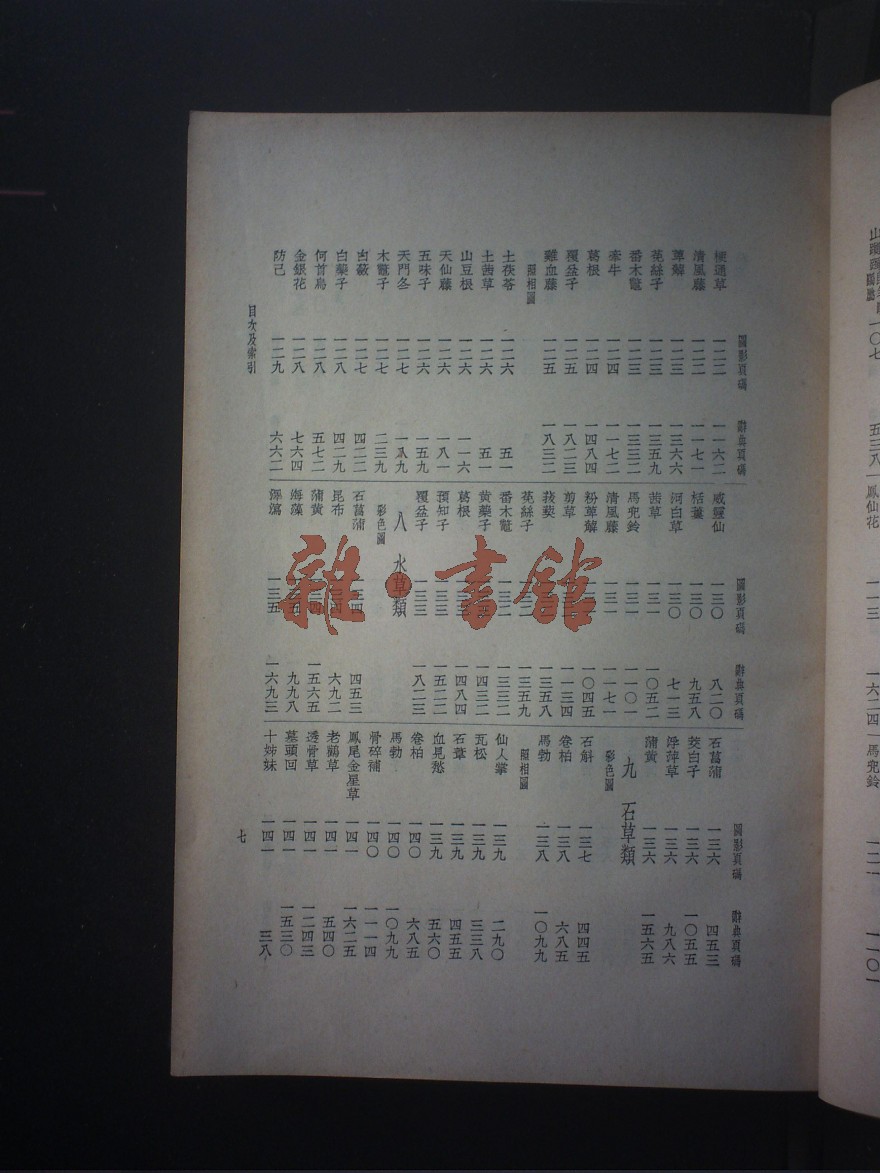 圖影頁碼 辭典頁碼
通草 一二二 一一六二
清風藤 一二二 一一七一
萆薢 一二三 一三六六
菟絲子 一二三 一三五九
番木鼈 一二三 一三三二
牽牛 一二四 一一七二
葛根 一二四 一四八四
覆盆子 一二五 一八二三
雞血藤 一二五 一八三二
照相圖
土茯苓 一二六 五一
土茜草 一二六 五一
山豆根 一二六 一一六
天仙藤 一二六 一八一
五味子 一二六 一五九
天門冬 一二七 一八九
木鼈子 一二七 二三九
白蘞 一二七 四二二
白藥子 一二八 四二九
何首烏 一二八 五七二
金銀花 一二八 七六四
防己 一二九 六六二
圖影頁碼 辭典頁碼
威靈仙 一三〇 八二〇
栝蔞 一三〇 九五八
河白草 一三〇 七一三
茜草 一三一 一〇五二
馬兜鈴 一三一 一一〇一
清風藤 一三一 一一七一
粉萆薢 一〇四五
剪草 一一三四
菝葜 一三五八
菟絲子 一三五九
番木鼈 一三三二
黃藥子 一四三二
葛根 一四八四
預知子 一三三 一五二二
覆盆子 一三三 一八二三
八 水草類
彩色圖
石菖蒲 一三四 四五三
昆布 六九二
蒲黃 一五六五
海藻 九九八
澤瀉 一三五 一六九三
圖影頁碼 辭典頁碼
石菖蒲 一三六 四五三
茭白子 一三六 一〇五五
浮萍草 一三六 九八六
蒲黃 一三六 一五六五
九 石草類
彩色圖
石斛 一三七 四四五
卷柏 一三八 六八五
馬勃 一三八 一〇九九
照相圖
仙人掌 一三九 二九〇
瓦松 一三九 三三八
石葦 一三九 四五五
血見愁 一三九 五六〇
卷柏 一四〇 六八五
馬勃 一四〇 一〇九九
骨碎補 一四〇 一一一四
鳳尾金星草 一四一 一六二五
老鸛草 一四一 五四〇
透骨草 一四一 一二四三
墓頭回 一四一 一五三〇
十姊妹 一四一 三八
目次及索引
七
雜·書館
一〇七 五三八
鳳仙花 一一三 一六二四
馬兜鈴 一二一 一一〇一